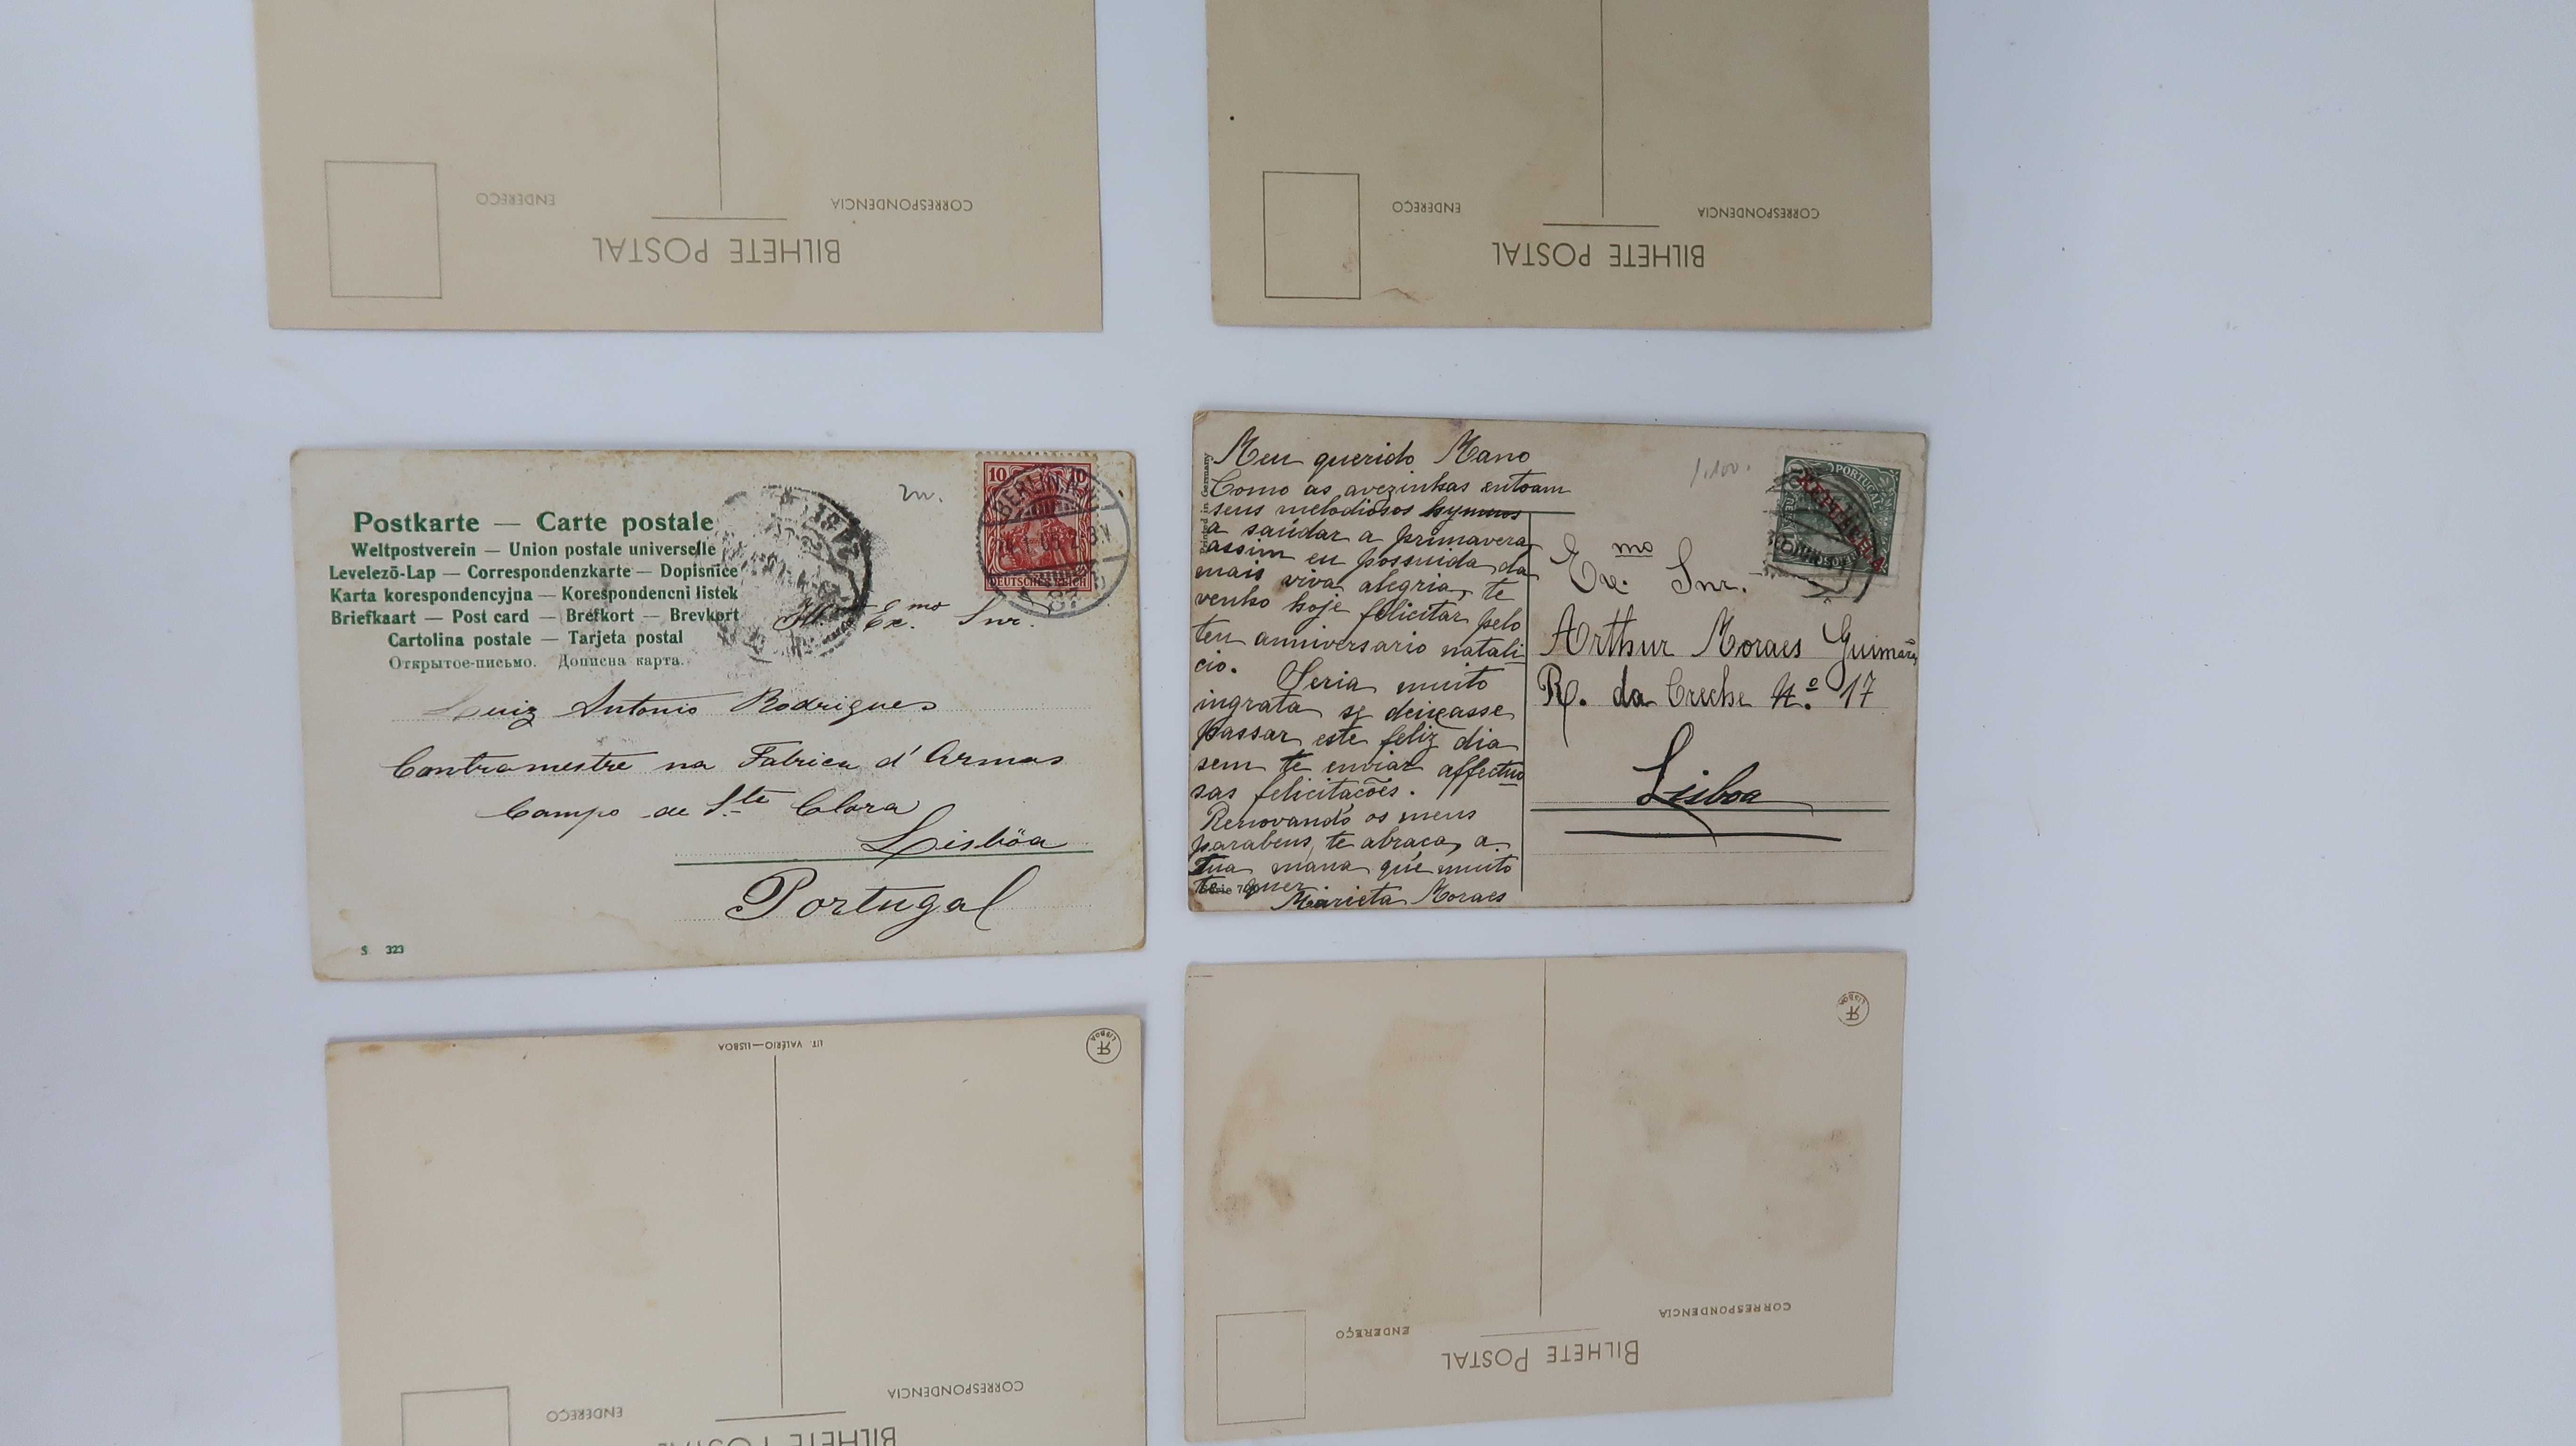 ENDEREÇO
CORRESPONDENCIA
BILHETE POSTAL
ENDEREÇO
CORRESPONDENCIA
BILHETE POSTAL
Postkarte — Carte postale
Weltpostverein — Union postale universelle
Levelezö-Lap — Correspondenzkarte — Dopisnice
Karta korespondencyjna — Korespondencni listek
Briefkaart — Post card — Brefkort — Brevkort
Cartolina postale — Tarjeta postal
Открытое-письмо. Дописна карта.
10 10
DEUTSCHES REICH
BERLIN
Illmo Exmo Snr.
Luiz Antonio Rodrigues
Contramestre na Fabrica d'Armas
Campo de Sta Clara
Lisböa
Portugal
S 323
Printed in Germany
Meu querido Mano
Como as avezinhas entoam
seus melodiosos hymnos
a saúdar a primavera
assim eu possuida da
mais viva alegria, te
venho hoje felicitar pelo
teu anniversario natali-
cio. Seria muito
ingrata se deixasse
passar este feliz dia
sem te enviar affectuo
sas felicitacões.
Renovando os meus
parabens, te abraça, a
tua mana que muito
te quer
Marieta Moraes
Serie
1.100.
PORTUGAL
REPUBLICA
Exmo Snr.
Arthur Moraes Guimarães
R. da Creche Nº 17
Lisboa
LIT. VALÉRIO—LISBOA
LISBOA
CORRESPONDENCIA
ENDEREÇO
BILHETE POSTAL
LISBOA
CORRESPONDENCIA
ENDEREÇO
BILHETE POSTAL